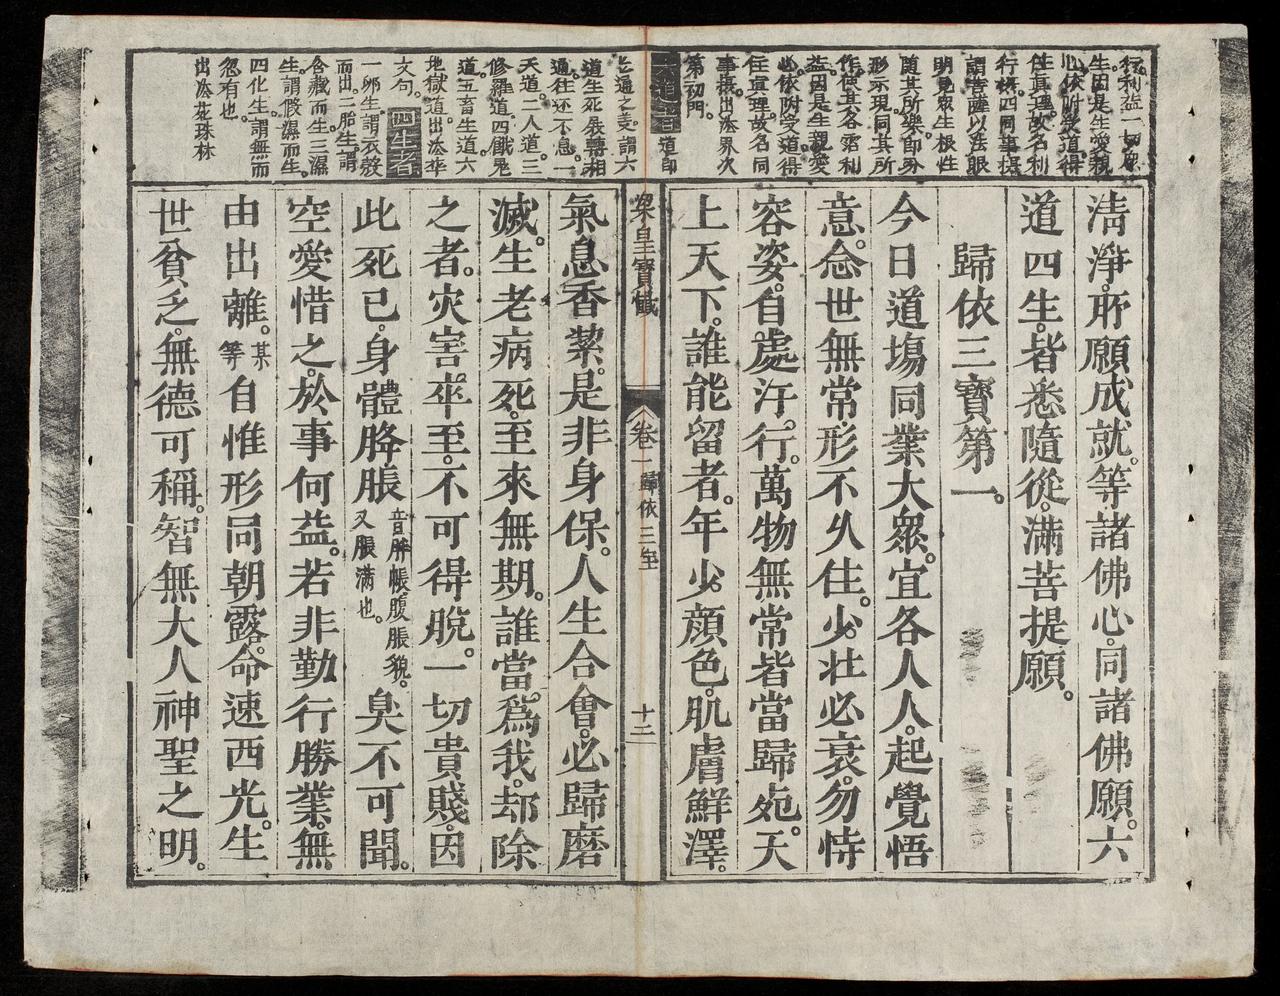 行利益一切衆
生因是生愛親
心依附受道得
住眞理故名利
行攝。四同事攝
謂菩薩以法眼
明見衆生根性
隨其所樂即分
形示現同其所
作使其各霑利
益因是生親愛
心依附受道得
住眞理故名同
事攝出法界次
第初門。
六道者道即
能通之義謂六
道生死展轉相
通往還不息。一
天道二人道。三
修羅道。四餓鬼
道。五畜生道六
地獄道出法華
文句。四生者
一卵生謂衣殼
而出二胎生。謂
含藏而生。三濕
生。謂假濕而生。
四化生。謂無而
忽有也。
出法苑珠林
清淨。所願成就。等諸佛心。同諸佛願。六
道四生。皆悉隨從。滿菩提願。
歸依三寶第一。
今日道場同業大衆。宜各人人。起覺悟
意。念世無常。形不久住。少壯必衰。勿恃
容姿。自處汙行。萬物無常。皆當歸死。天
上天下。誰能留者。年少顏色。肌膚鮮澤。
梁皇寶懺 卷一 歸依三寶 十三
氣息香潔。是非身保。人生合會。必歸磨
滅。生老病死。至來無期。誰當爲我。却除
之者。灾害卒至。不可得脫。一切貴賤。因
此死已。身體胮脹音胮帳腹脹貌。又脹滿也。臭不可聞。
空愛惜之。於事何益。若非勤行勝業。無
由出離。某等自惟形同朝露。命速西光。生
世貧乏。無德可稱。智無大人神聖之明。